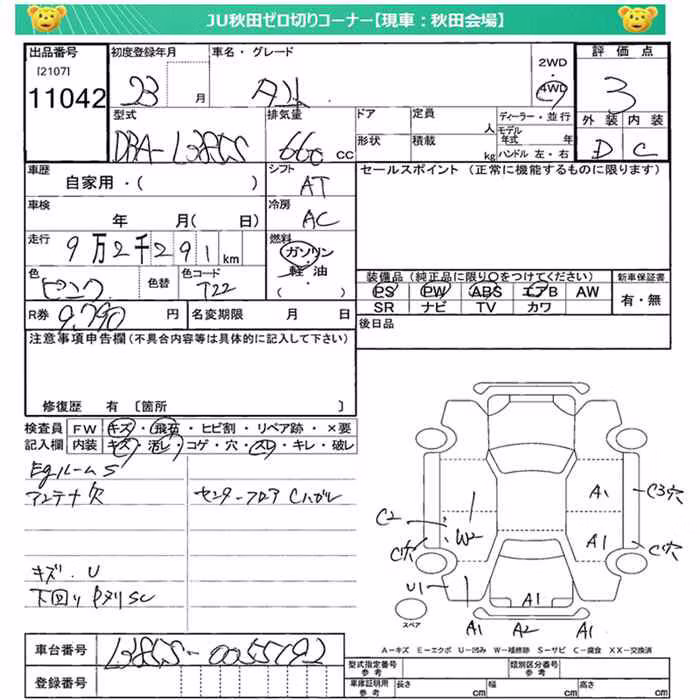 JU秋田ゼロ切りコーナー【現車：秋田会場】
出品番号 初度登録年月 車名・グレード 2WD 評価点
[2107] 11042 23 月 4WD 3
外装 内装
D C
型式 排気量 ドア 定員 人 ディーラー・並行
DBA-L385S 660 cc 形状 積載 kg モデル年式 年
ハンドル 左・右
車歴 シフト セールスポイント（正常に機能するものに限ります）
自家用・( ) AT
車検 冷房
年 月( 日) AC
走行 燃料
9万2千291km ガソリン・軽油
( )
色 色替 色コード 装備品（純正品に限り○をつけてください） 新車保証書
ピンク T22 PS PW ABS エアB AW 有・無
SR ナビ TV カワ
R券 9,790 円 名変期限 月 日 後日品
注意事項申告欄（不具合内容等は具体的に記入して下さい）
修復歴 有 〔箇所 〕
検査員 FW キズ・飛石・ヒビ割・リペア跡・×要
記入欄 内装 キズ・汚レ・コゲ・穴・スレ・キレ・破レ
EgルームS
アンテナ欠 センターフロアCハガレ
キズ.U
下回りPヌリSC
C2 W2 A1 C3穴
C穴 A1 C穴
U1 A1
スペア A1 A2 A1
A－キズ E－エクボ U－凹み W－補修跡 S－サビ C－腐食 XX－交換済
車台番号 L385S-0055792
登録番号
型式指定番号 参考 類別区分番号 参考
車庫証明用 参考 長さ cm 幅 cm 高さ cm